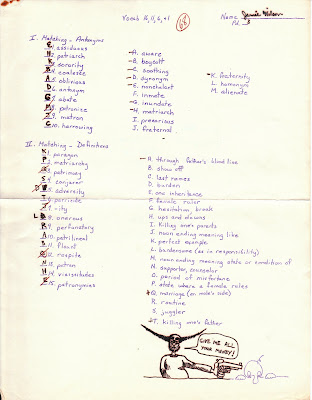 Vocab 16, 11, 6, +1
Name
I. Matching - Antonyms
1. assiduous
2. patriarch
3. sorority
4. coalesce
5. oblivious
6. antonym
7. abate
8. patronize
9. matron
10. harrowing
A. aware
B. boycott
C. soothing
D. synonym
E. nonchalant
F. inmate
G. inundate
H. matriarch
I. precarious
J. fraternal
K. fraternity
L. homonym
M. alienate
II. Matching - Definitions
1. paragon
2. matriarchy
3. patrimony
4. conjurer
5. adversity
6. parricide
7. -ity
8. onerous
9. perfunctory
10. patrilineal
11. flaunt
12. respite
13. patron
14. vicissitudes
15. patronymics
A. through father's blood line
B. show off
C. last names
D. burden
E. one inheritance
F. female ruler
G. hesitation, break
H. ups and downs
I. Killing one's parents
J. noun ending meaning like
K. perfect example
L. burdensome (as in responsibility)
M. noun ending meaning state or condition of
N. supporter, counselor
O. period of misfortune
P. state where a female rules
Q. marriage (on male's side)
R. routine
S. juggler
T. killing one's father
GIVE ME ALL
YOUR MONEY!